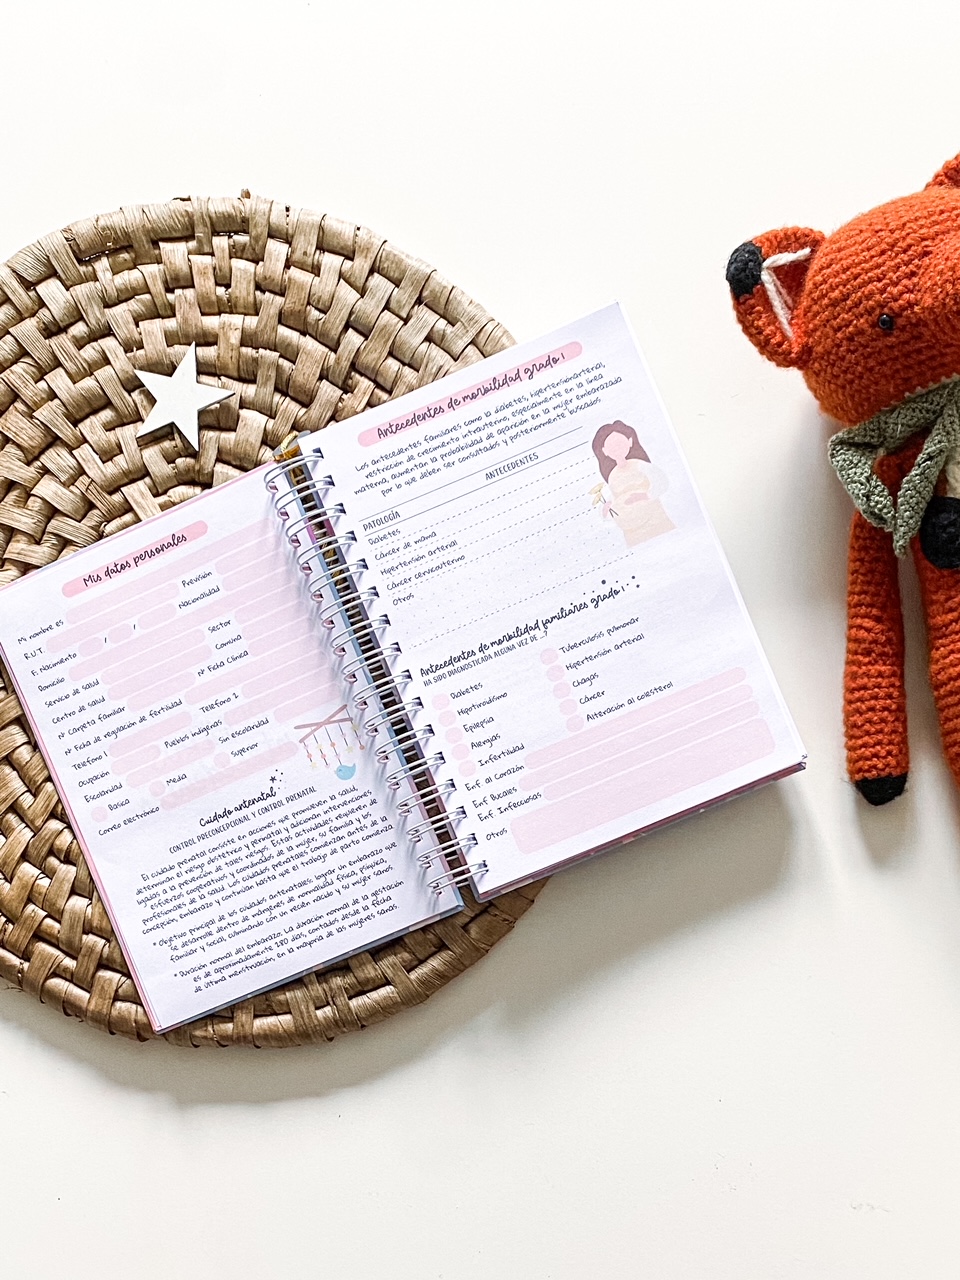 Mis datos personales
Mi nombre es
R.U.T. Previsión
F. Nacimiento / / Nacionalidad
Domicilio
Servicio de salud Sector
Centro de salud Comuna
Nº Carpeta familiar Nº Ficha Clínica
Nº Ficha de regulación de fertilidad
Teléfono 1 Teléfono 2
Ocupación Pueblos indígenas
Escolaridad Sin escolaridad
Básica Media Superior
Correo electrónico
Cuidado antenatal
CONTROL PRECONCEPCIONAL Y CONTROL PRENATAL
El cuidado prenatal consiste en acciones que promueven la salud,
determinan el riesgo obstétrico y perinatal y adicionan intervenciones
ligadas a la prevención de tales riesgos. Estas actividades requieren de
esfuerzos cooperativos y coordinados de la mujer, su familia y los
profesionales de la salud. Los cuidados prenatales comienzan antes de la
concepción, embarazo y continúan hasta que el trabajo de parto comienza.
* Objetivo principal de los cuidados antenatales: lograr un embarazo que
se desarrolle dentro de márgenes de normalidad física, psíquica,
familiar y social, culminando con un recién nacido y su mujer sanos.
* Duración normal del embarazo: La duración normal de la gestación
es de aproximadamente 280 días, contados desde la fecha
de última menstruación, en la mayoría de las mujeres sanas.
Antecedentes de morbilidad grado 1
Los antecedentes familiares como la diabetes, hipertensión arterial,
restricción de crecimiento intrauterino, especialmente en la línea
materna, aumentan la probabilidad de aparición en la mujer embarazada
por lo que deben ser consultados y posteriormente buscados.
PATOLOGÍA ANTECEDENTES
Diabetes
Cáncer de mama
Hipertensión arterial
Cáncer cervicouterino
Otros
Antecedentes de morbilidad familiares grado 1
HA SIDO DIAGNOSTICADA ALGUNA VEZ DE ...?
Diabetes Tuberculosis pulmonar
Hipotiroidismo Hipertensión arterial
Epilepsia Chagas
Alergias Cáncer
Infertilidad Alteración al colesterol
Enf. al Corazón
Enf Bucales
Enf. Infecciosas
Otros